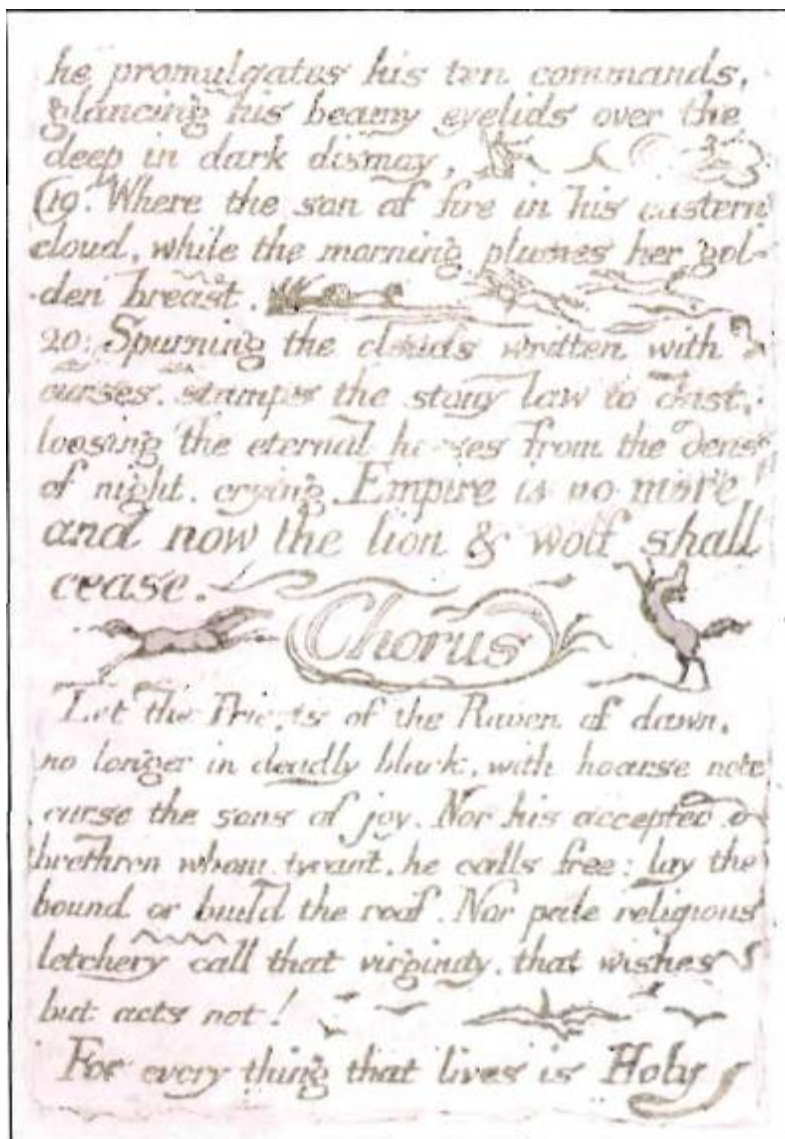 he promulgates his ten commands,
glancing his beamy eyelids over the
deep in dark dismay,
19. Where the son of fire in his eastern
cloud, while the morning plumes her gol-
-den breast.
20. Spurning the clouds written with
curses. stamps the stony law to dust,
loosing the eternal horses from the dens
of night. crying Empire is no more!
and now the lion & wolf shall
cease.
Chorus
Let the Priests of the Raven of dawn,
no longer in deadly black, with hoarse note
curse the sons of joy. Nor his accepted
brethren whom, tyrant, he calls free: lay the
bound or build the roof. Nor pale religious
letchery call that virginity, that wishes
but acts not!
For every thing that lives is Holy